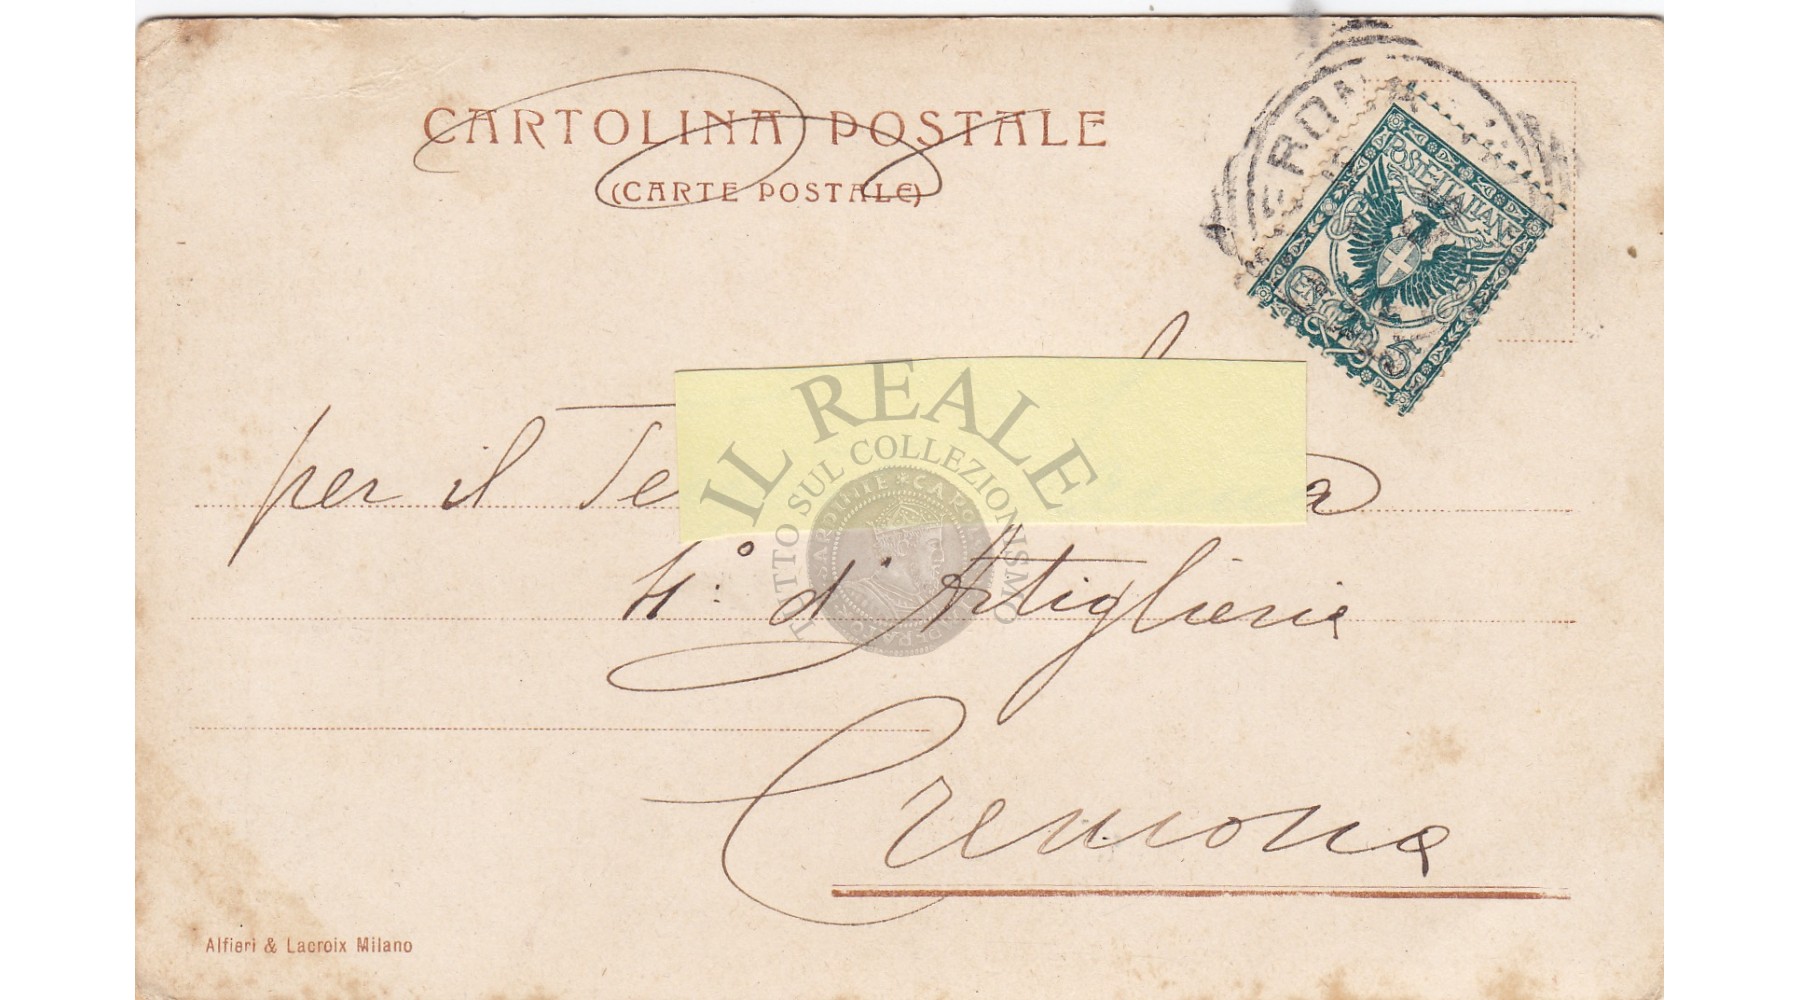 CARTOLINA POSTALE
(CARTE POSTALE)
POSTE ITALIANE
CENT 5
per il Te
4° d'Artiglieria
Cremona
Alfieri & Lacroix Milano
IL REALE
TUTTO SUL COLLEZIONISMO